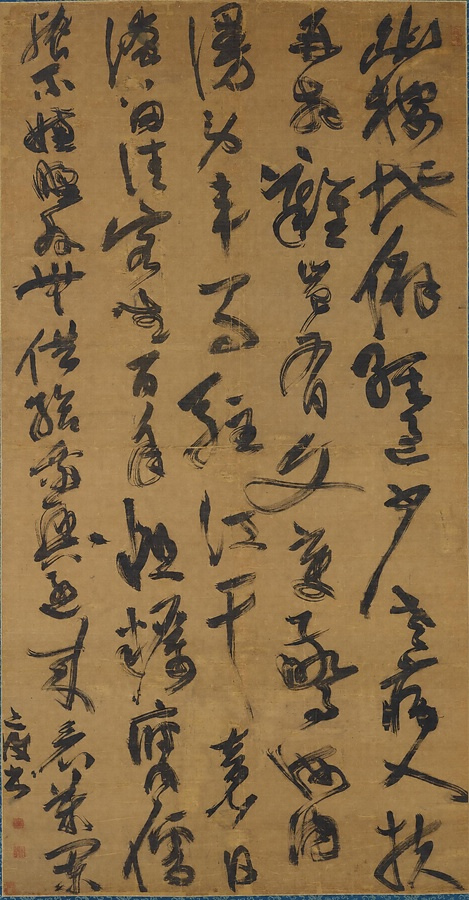 幽棲地僻經過少老病人扶
再拜難豈有文章驚海內
漫勞車馬駐江干竟日
淹留佳客坐百年粗糲腐儒
餐不嫌野外無供給乘興還來看藥欄
之書